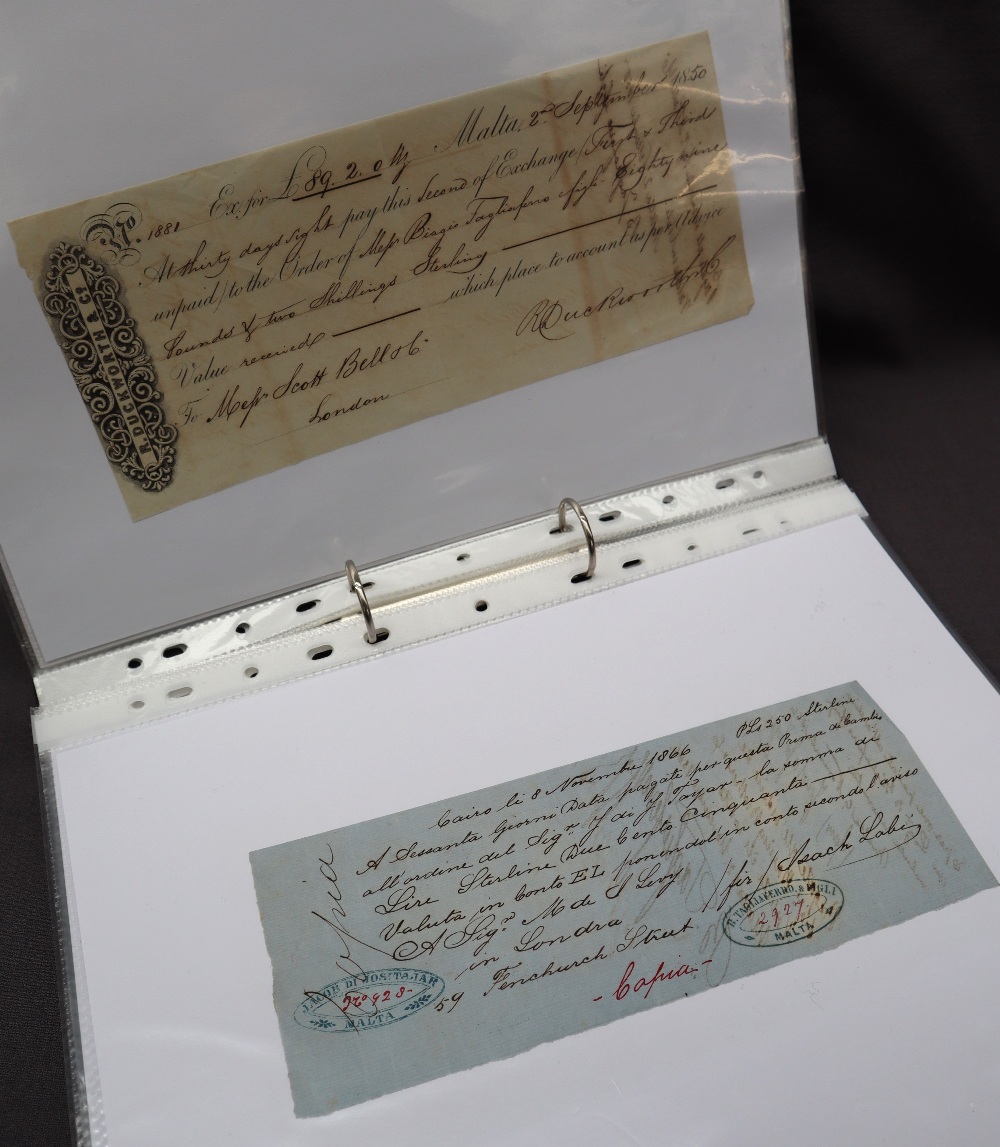 No. 1881 Ex. for £ 89. 2. 0 Stg Malta, 2nd September 1850
At thirty days sight pay this Second of Exchange (First & Third
unpaid) to the Order of Messrs Biagio Tagliaferro & figli Eighty nine
Pounds & two Shillings Sterling
Value received which place to account as per advice
To Messrs Scott Bell & Co
London
R Duckworth & Co
R. DUCKWORTH & Co.
Cairo li 8 Novembre 1866 PLs 250 Sterline
A Sessanta Giorni Data pagate per questa Prima di Cambio
all'ordine del Sigr. J di J Tayar la somma di
Lire Sterline Due Cento Cinquanta
Valuta in Conto EL ponendol in conto secondo l'aviso
A Sigr. M de S Levy /fir/ Isach Labi
in Londra
59 Fenchurch Street
Copia
- Copia -
JACOB DI MOSI TAJAR
No 928-
MALTA
B. TAGLIAFERRO, & FIGLI
2927
MALTA